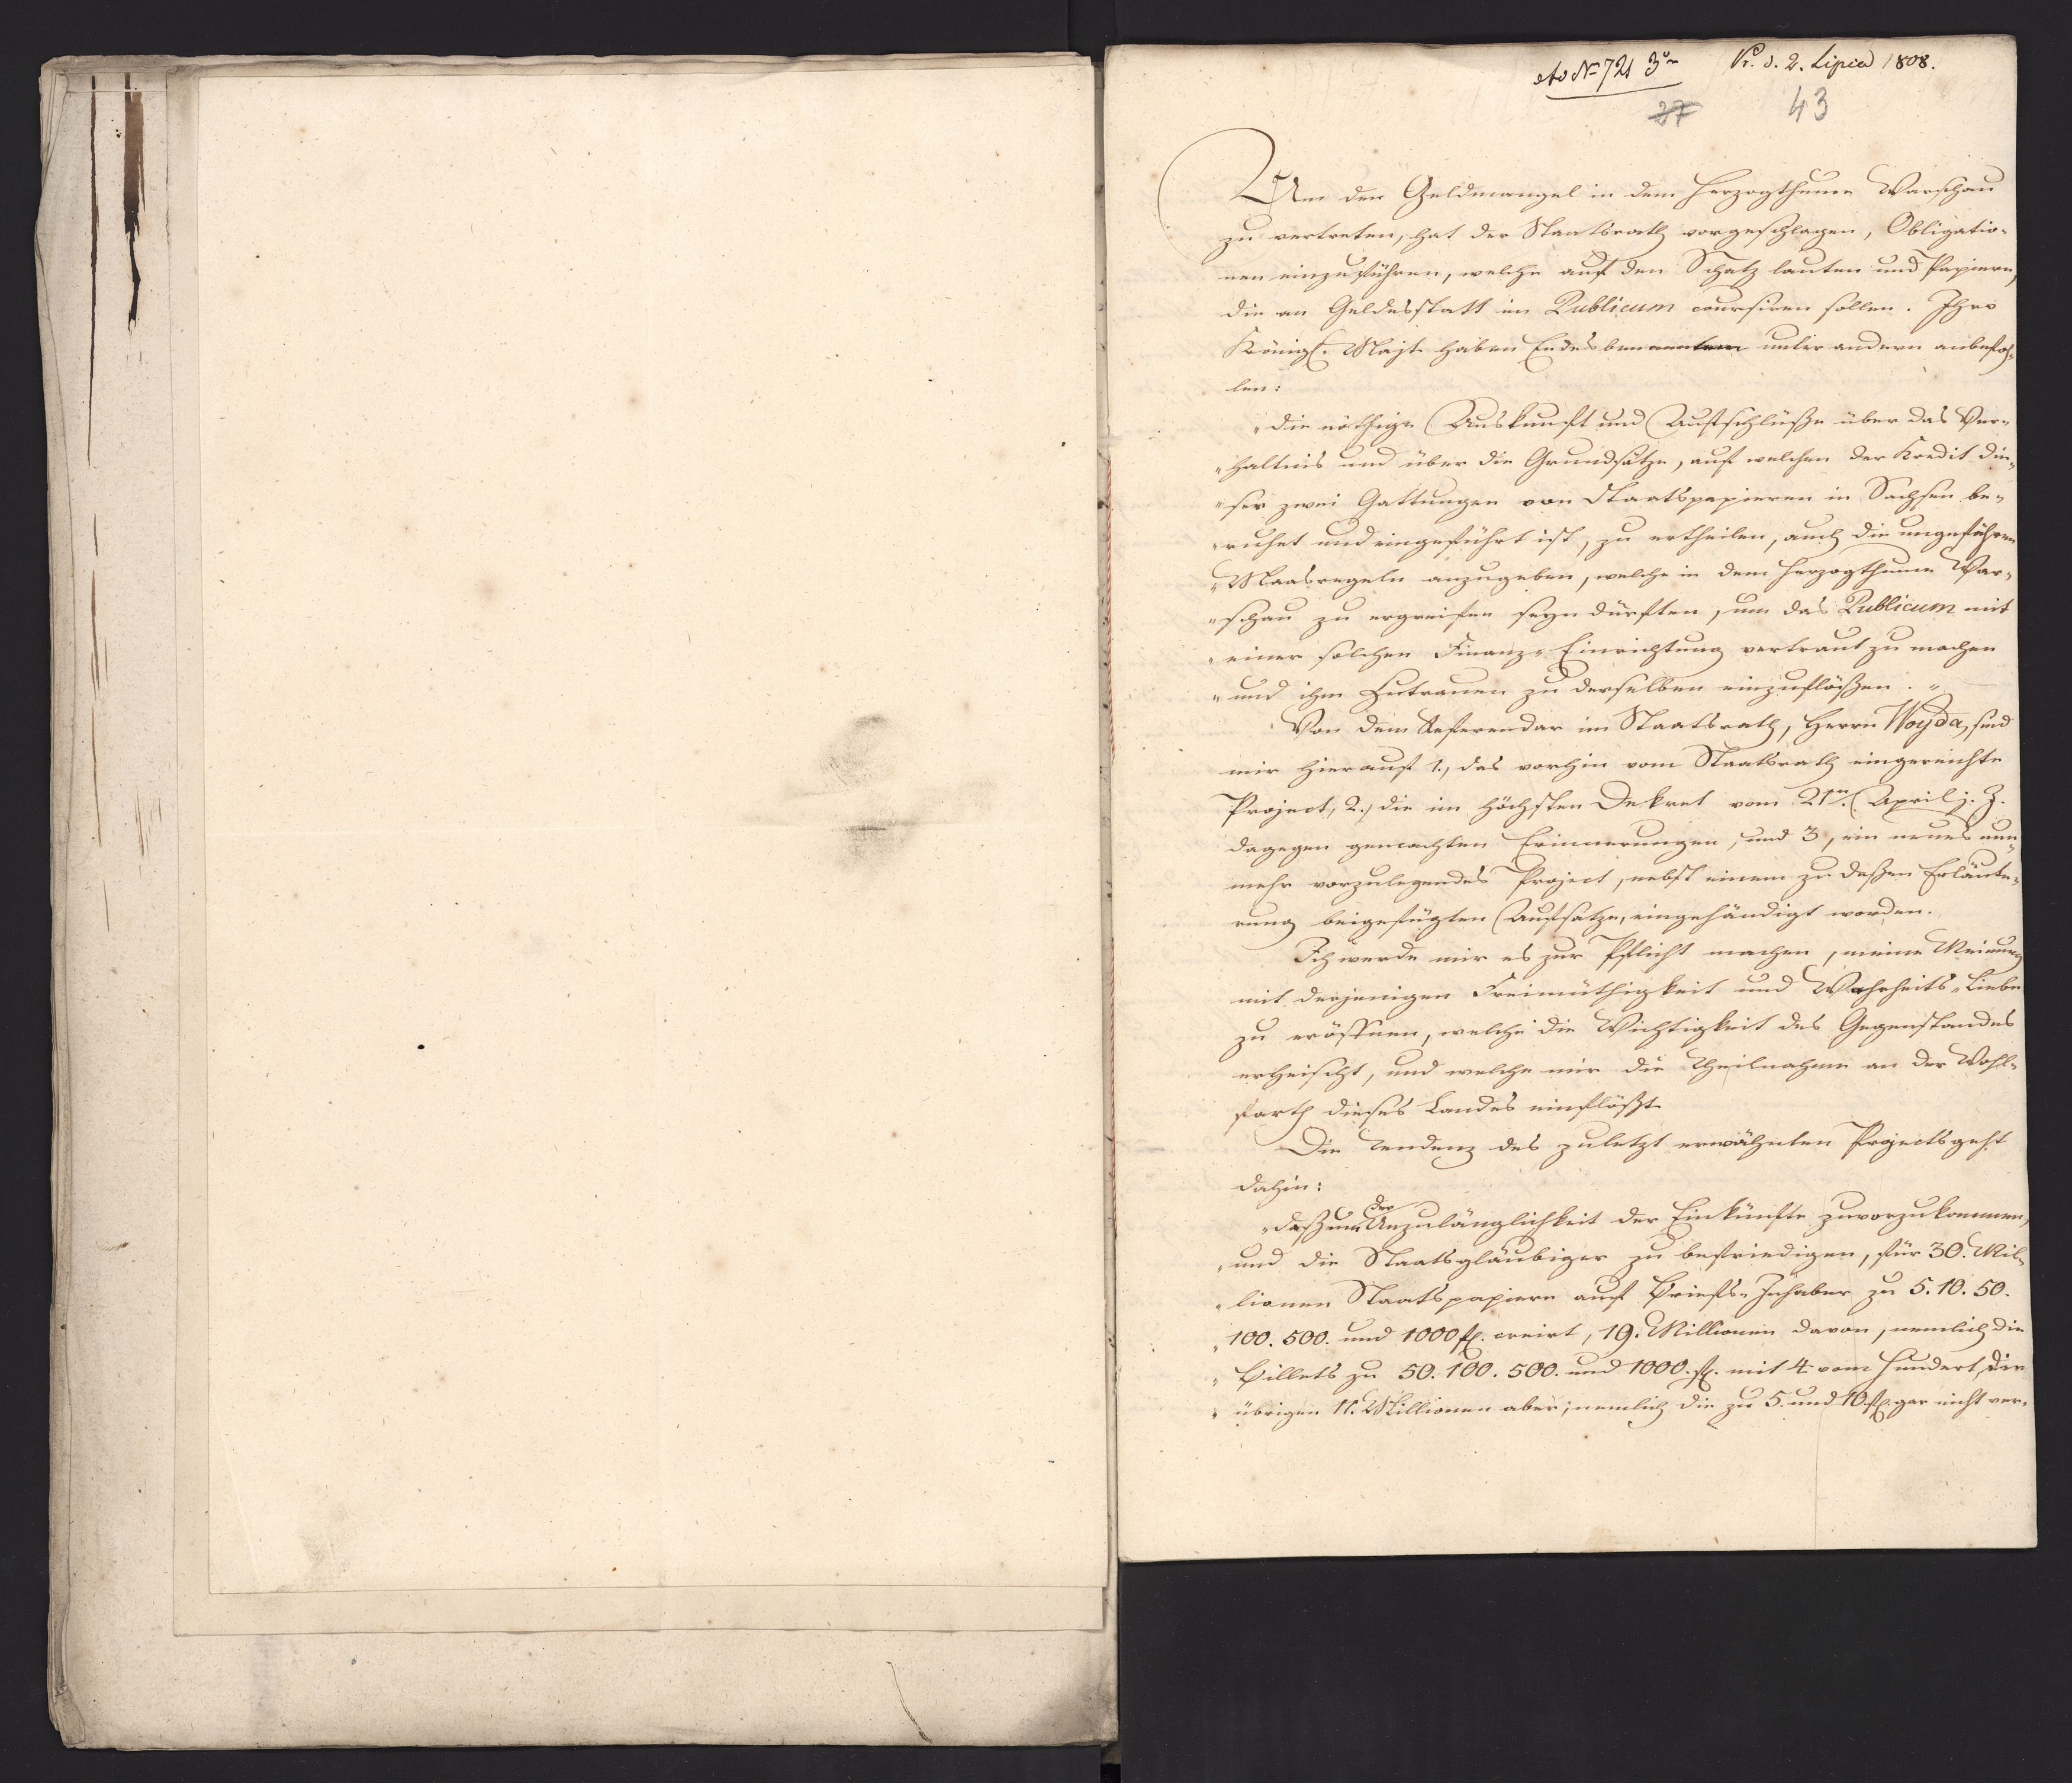 ad No 721 3
Pr. d. 2. Lipca 1808.
37 43
Um den Geldmangel in dem Herzogthume Warschau
zu vertreten, hat der Staatsrath vorgeschlagen, Obligatio-
nen einzuführen, welche auf den Schatz lauten und Papiere,
die an Geldesstatt im Publicum coursiren sollen. Ihro
Königl. Majt. haben Endesbenanntem unter andern anbefoh-
len:
"die nöthige Auskunft und Aufschlüße über das Ver-
"hältnis und über die Grundsätze, auf welchen der Kredit die-
"ser zwei Gattungen von Staatspapieren in Sachsen be-
"ruhet und eingeführt ist, zu ertheilen, auch die ungefähren
"Maasregeln anzugeben, welche in dem Herzogthume War-
"schau zu ergreifen seyn dürften, um das Publicum mit
"einer solchen Finanz-Einrichtung vertraut zu machen
"und ihm Zutrauen zu derselben einzuflößen."
Von dem Referendar im Staatsrath, Herrn Woyda, sind
mir hierauf 1., das vorhin vom Staatsrath eingereichte
Project, 2., die im höchsten Dekret vom 21n. April j. J.
dagegen gemachten Erinnerungen, und 3, ein neues nun-
mehr vorzulegendes Project, nebst einem zu deßen Erläute-
rung beigefügten Aufsatze, eingehändigt worden.
Ich werde mir es zur Pflicht machen, meine Meinung
mit derjenigen Freimüthigkeit und Wahrheits-Liebe
zu eröffnen, welche die Wichtigkeit des Gegenstandes
erheischt, und welche mir die Theilnahme an der Wohl-
farth dieses Landes einflößt.
Die Tendenz des zuletzt erwähnten Projects geht
dahin:
"daß um der Unzulänglichkeit der Einkünfte zuvorzukommen,
"und die Staatsgläubiger zu befriedigen, für 30. Mil-
"lionen Staatspapiere auf Briefs-Inhaber zu 5. 10. 50.
"100. 500. und 1000 fl. creirt, 19. Millionen davon, nemlich die
"Billets zu 50. 100. 500. und 1000. fl. mit 4 vom Hundert, die
"übrigen 11. Millionen aber, nemlich die zu 5. und 10. fl. gar nicht ver-